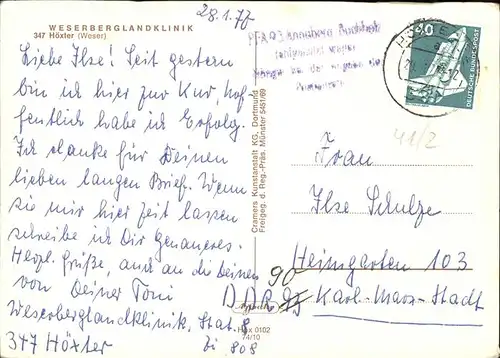 28.1.77
WESERBERGLANDKLINIK
347 Höxter (Weser)
Liebe Ilse! Seit gestern
bin ich hier zur Kur, hof-
fentlich habe ich Erfolg.
Ich danke für Deinen
lieben langen Brief. Wenn
sie mir hier Zeit lassen
schreibe ich Dir Genaueres.
Herzl. Grüße, auch an die Deinen
von Deiner Toni
Weserberglandklinik, Stat. 8
347 Höxter Zi 808
Cramers Kunstanstalt KG, Dortmund
Freigeg. d. Reg.-Präs. Münster 5461/69
Hx 0102
74/10
DEUTSCHE BUNDESPOST
41/2
Frau
Ilse Schulze
Heimgarten 103
90
DDR Karl-Marx-Stadt